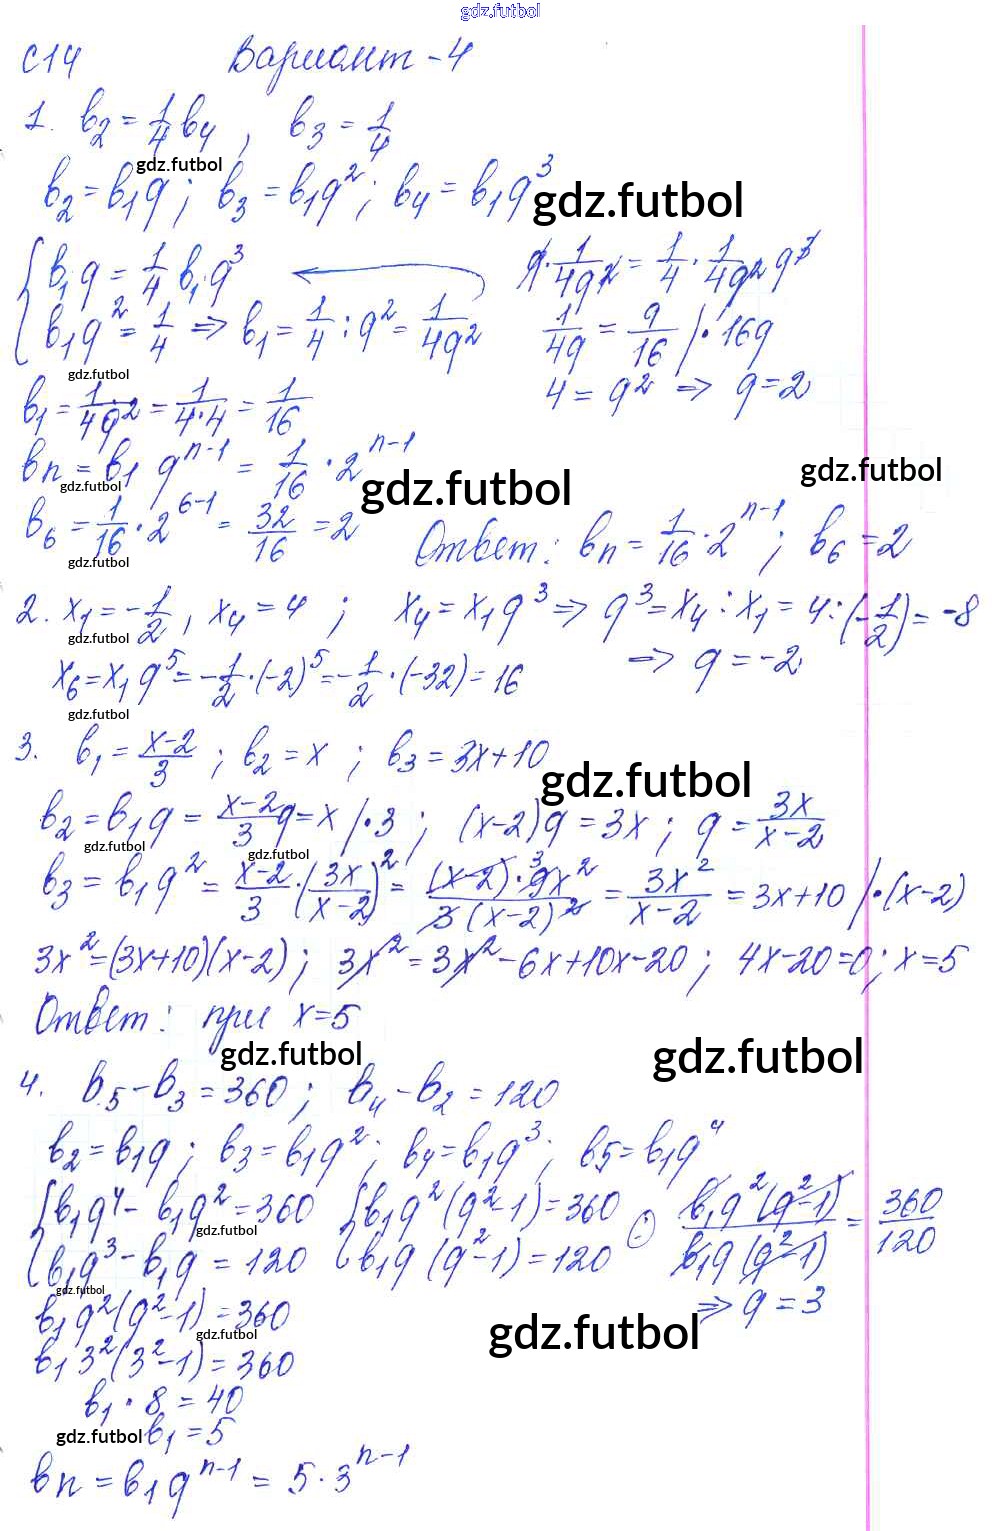 gdz.futbol
С14 Вариант-4
1. b₂ = 1/4 b₄, b₃ = 1/4
gdz.futbol
b₂ = b₁q; b₃ = b₁q²; b₄ = b₁q³ gdz.futbol
{ b₁q = 1/4 b₁q³ q · 1/4q² = 1/4 · 1/4q² q³
b₁q² = 1/4 => b₁ = 1/4 : q² = 1/4q² 1/4q = q/16 | · 16q
gdz.futbol
4 = q² => q = 2
b₁ = 1/4q² = 1/4·4 = 1/16
bn = b₁ qⁿ⁻¹ = 1/16 · 2ⁿ⁻¹ gdz.futbol
gdz.futbol gdz.futbol
b₆ = 1/16 · 2⁶⁻¹ = 32/16 = 2 Ответ: bn = 1/16 · 2ⁿ⁻¹; b₆ = 2
gdz.futbol
2. x₁ = -1/2, x₄ = 4; x₄ = x₁q³ => q³ = x₄ : x₁ = 4 : (-1/2) = -8
gdz.futbol
=> q = -2
x₆ = x₁ q⁵ = -1/2 · (-2)⁵ = -1/2 · (-32) = 16
gdz.futbol
3. b₁ = x-2/3; b₂ = x; b₃ = 3x+10
gdz.futbol
b₂ = b₁q = x-2/3 q = x | · 3; (x-2)q = 3x; q = 3x/x-2
gdz.futbol gdz.futbol
b₃ = b₁q² = x-2/3 · (3x/x-2)² = (x-2) · 9³x²/3(x-2)² = 3x²/x-2 = 3x+10 | · (x-2)
3x² = (3x+10)(x-2); 3x² = 3x² - 6x + 10x - 20; 4x - 20 = 0; x = 5
Ответ: при x = 5
gdz.futbol gdz.futbol
4. b₅ - b₃ = 360; b₄ - b₂ = 120
b₂ = b₁q; b₃ = b₁q²; b₄ = b₁q³; b₅ = b₁q⁴
{ b₁q⁴ - b₁q² = 360 { b₁q²(q²-1) = 360 (:) b₁q²(q²-1)/b₁q(q²-1) = 360/120
gdz.futbol
b₁q³ - b₁q = 120 b₁q(q²-1) = 120
gdz.futbol
=> q = 3
b₁q²(q²-1) = 360
gdz.futbol gdz.futbol
b₁ 3²(3²-1) = 360
b₁ · 8 = 40
gdz.futbol b₁ = 5
bn = b₁qⁿ⁻¹ = 5 · 3ⁿ⁻¹